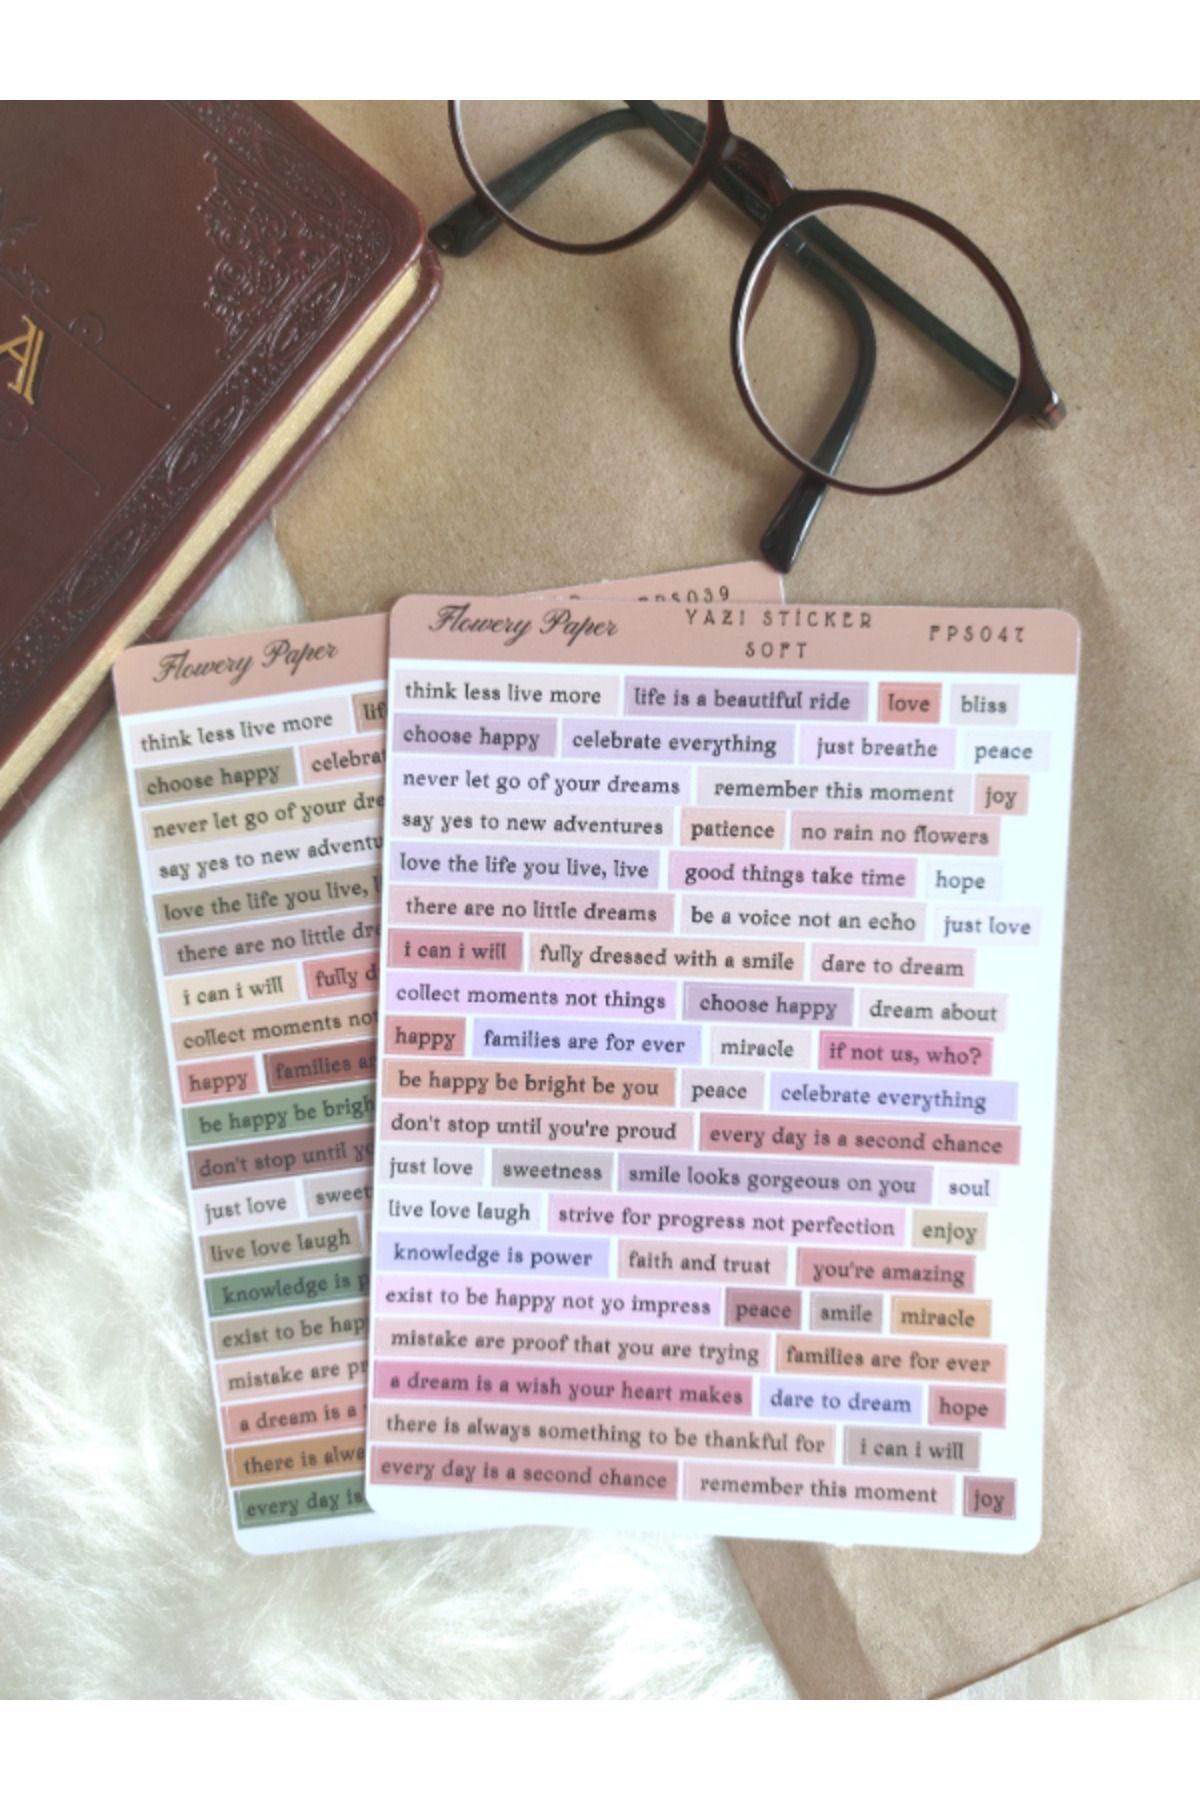 A
PPS039
Flowery Paper
think less live more
choose happy
never let go of your
say yes to new
love the life you live,
there are no little
i can i will fully
collect moments not
happy families
be happy be
don't stop until
just love
live love laugh
knowledge is
exist to be
mistake are
a dream is a
there is
every day is
Flowery Paper YAZI STİCKER PPS047
SOFT
think less live more life is a beautiful ride love bliss
choose happy celebrate everything just breathe peace
never let go of your dreams remember this moment joy
say yes to new adventures patience no rain no flowers
love the life you live, live good things take time hope
there are no little dreams be a voice not an echo just love
i can i will fully dressed with a smile dare to dream
collect moments not things choose happy dream about
happy families are for ever miracle if not us, who?
be happy be bright be you peace celebrate everything
don't stop until you're proud every day is a second chance
just love sweetness smile looks gorgeous on you soul
live love laugh strive for progress not perfection enjoy
knowledge is power faith and trust you're amazing
exist to be happy not yo impress peace smile miracle
mistake are proof that you are trying families are for ever
a dream is a wish your heart makes dare to dream hope
there is always something to be thankful for i can i will
every day is a second chance remember this moment joy